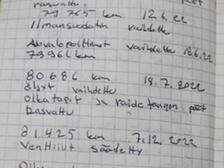 79765 km 12.6.22
ilmansuodatin vaihdettu
vaihdettu
79961 km
80686 km 18.7.2022
öljyt vaihdettu
olkatapit ja raidetangon päät
rasvattu
81425 km 7.12.2022
Venttiilit säädetty